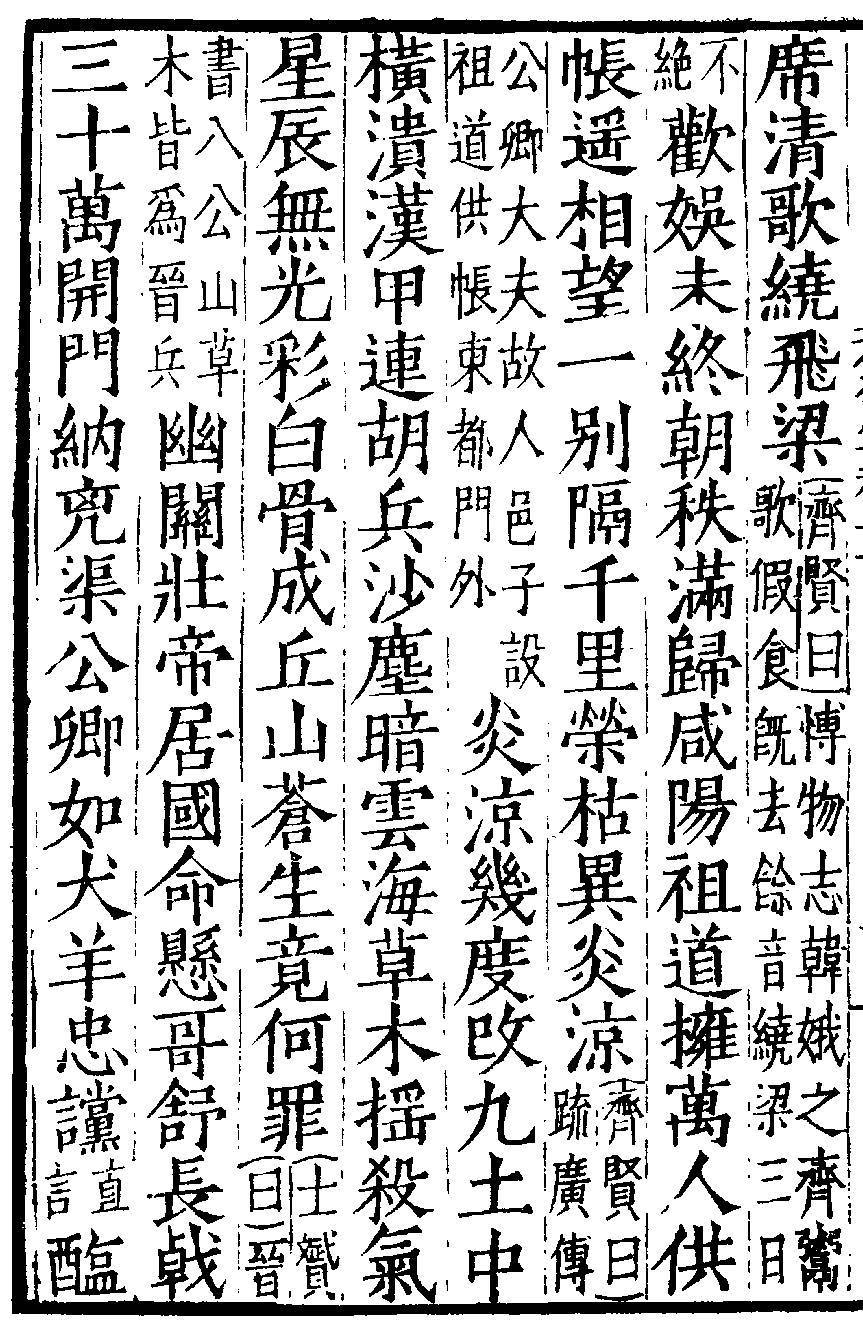 席清歌繞飛梁齊賢曰愽物志韓娥之齊鬻歌假食旣去餘音繞梁三日
不絶歡娛未終朝秩滿歸咸陽祖道擁萬人供
帳遥相望一别隔千里榮枯異炎涼齊賢曰疏廣傳
公卿大夫故人邑子設祖道供帳東都門外炎涼幾度改九土中
橫潰漢甲連胡兵沙塵暗雲海草木揺殺氣
星辰無光彩白骨成丘山蒼生竟何罪士贇曰晉
書八公山草木皆爲晉兵幽關壯帝居國命懸哥舒長戟
三十萬開門納兇渠公卿如犬羊忠讜直言醢